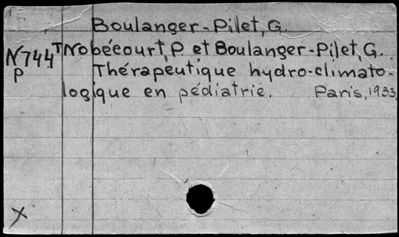 Boulanger-Pilet, G.
N744T Nobécourt, P. et Boulanger-Pilet, G.
P Thérapeutique hydro-climato-
logique en pédiatrie. Paris, 1933
X